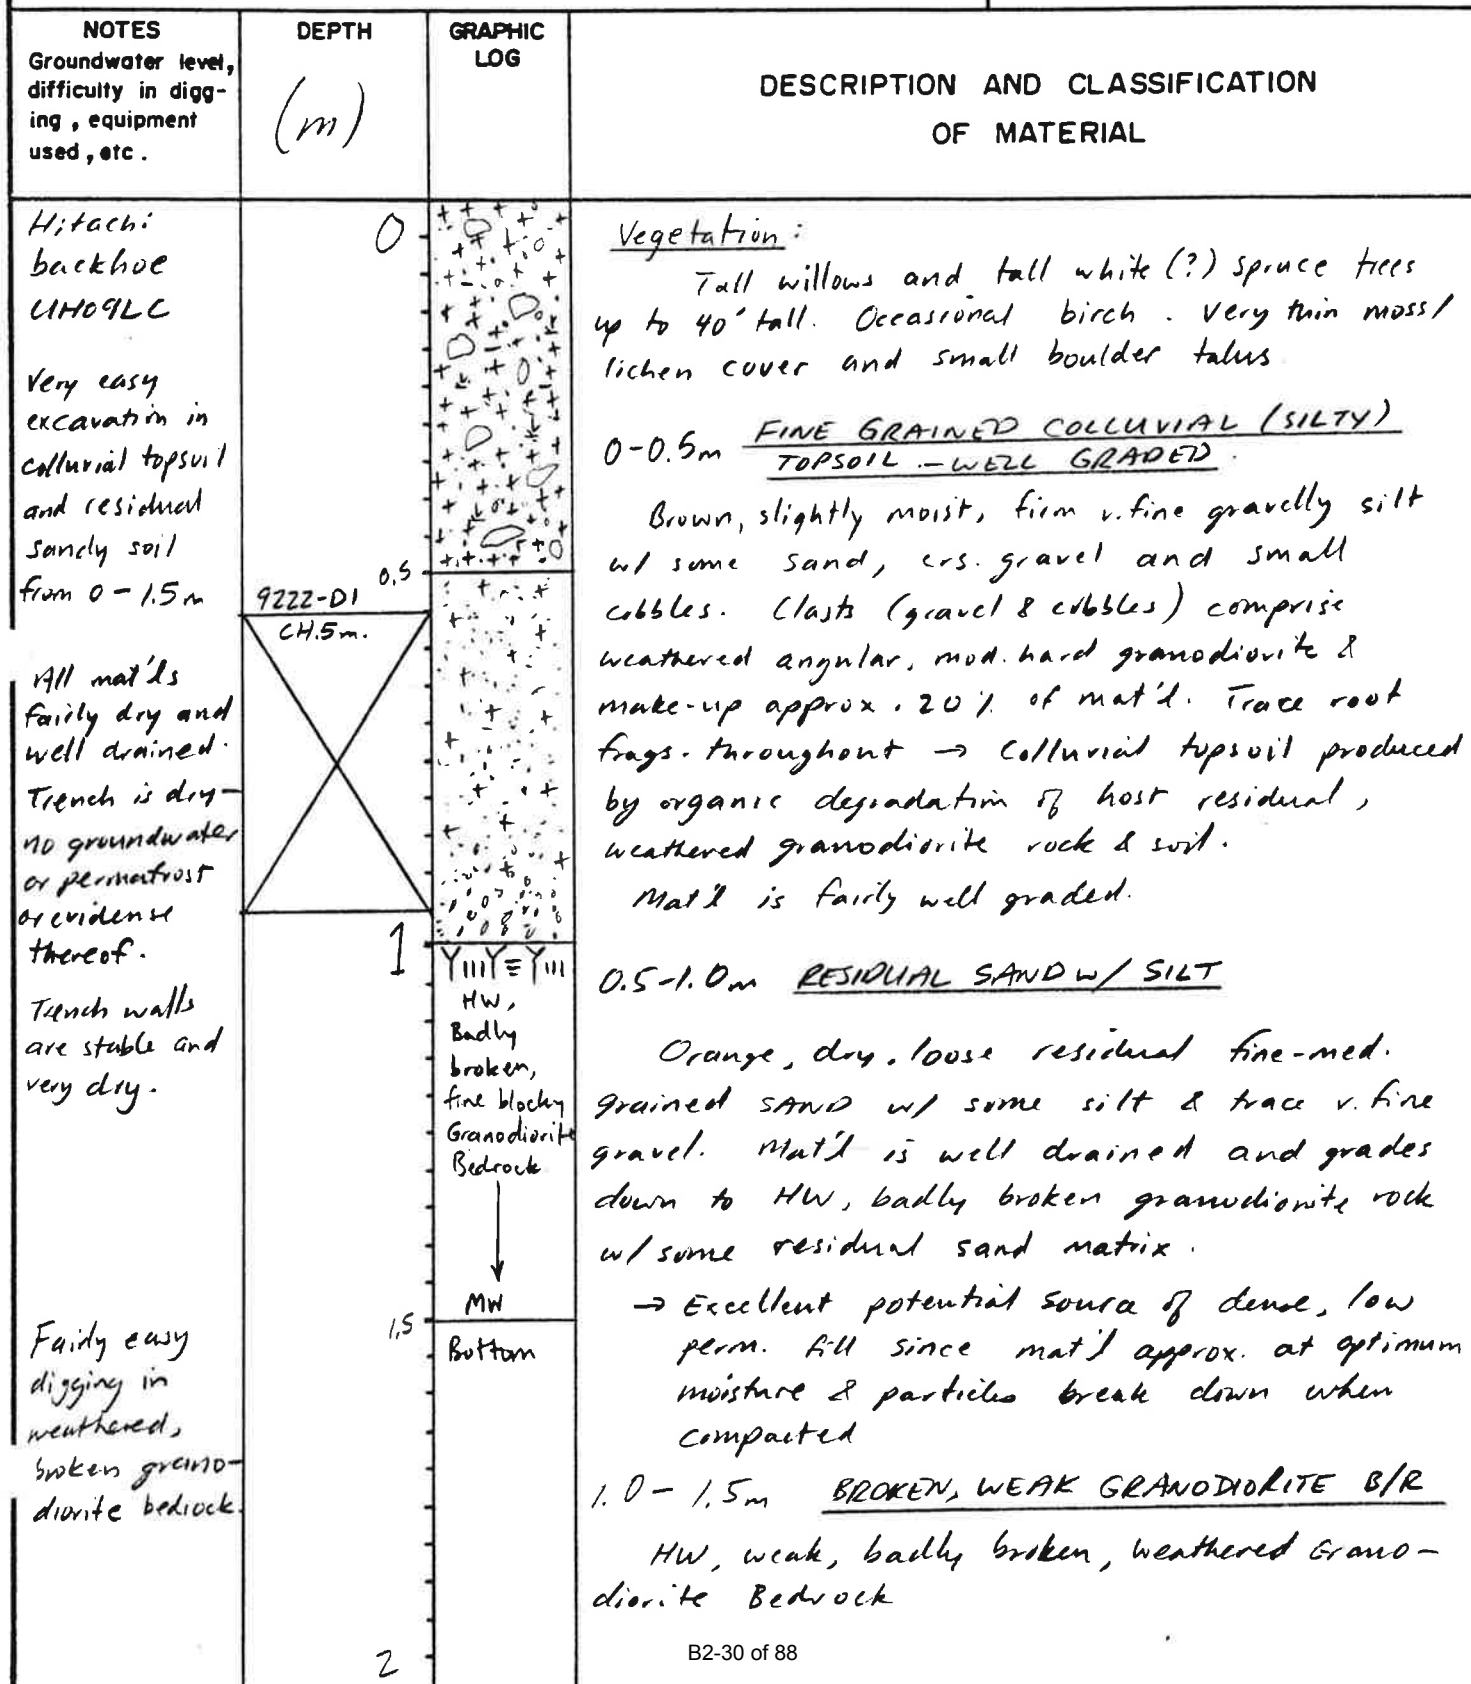 NOTES
Groundwater level,
difficulty in digg-
ing, equipment
used, etc.
DEPTH
(m)
GRAPHIC
LOG
DESCRIPTION AND CLASSIFICATION
OF MATERIAL
Hitachi
backhoe
UH09LC
Very easy
excavation in
colluvial topsoil
and residual
sandy soil
from 0 - 1.5m
All mat'ls
fairly dry and
well drained.
Trench is dry -
no groundwater
or permafrost
or evidense
thereof.
Trench walls
are stable and
very dry.
Fairly easy
digging in
weathered,
broken grano-
diorite bedrock.
0
0.5
9222-D1
CH.5m.
1
1.5
2
HW,
Badly
broken,
fine blocky
Granodiorite
Bedrock
MW
Bottom
Vegetation:
Tall willows and tall white (?) spruce trees
up to 40' tall. Occasional birch. Very thin moss/
lichen cover and small boulder talus
0-0.5m FINE GRAINED COLLUVIAL (SILTY)
TOPSOIL - WELL GRADED.
Brown, slightly moist, firm v. fine gravelly silt
w/ some sand, crs. gravel and small
cobbles. Clasts (gravel & cobbles) comprise
weathered angular, mod. hard granodiorite &
make-up approx. 20% of mat'l. Trace root
frags. throughout → Colluvial topsoil produced
by organic degradation of host residual,
weathered granodiorite rock & soil.
Mat'l is fairly well graded.
0.5-1.0m RESIDUAL SAND w/ SILT
Orange, dry, loose residual fine-med.
grained SAND w/ some silt & trace v. fine
gravel. Mat'l is well drained and grades
down to HW, badly broken granodiorite rock
w/ some residual sand matrix.
→ Excellent potential source of dense, low
perm. fill since mat'l approx. at optimum
moisture & particles break down when
compacted
1.0 - 1.5m BROKEN, WEAK GRANODIORITE B/R
HW, weak, badly broken, weathered Grano-
diorite Bedrock
B2-30 of 88